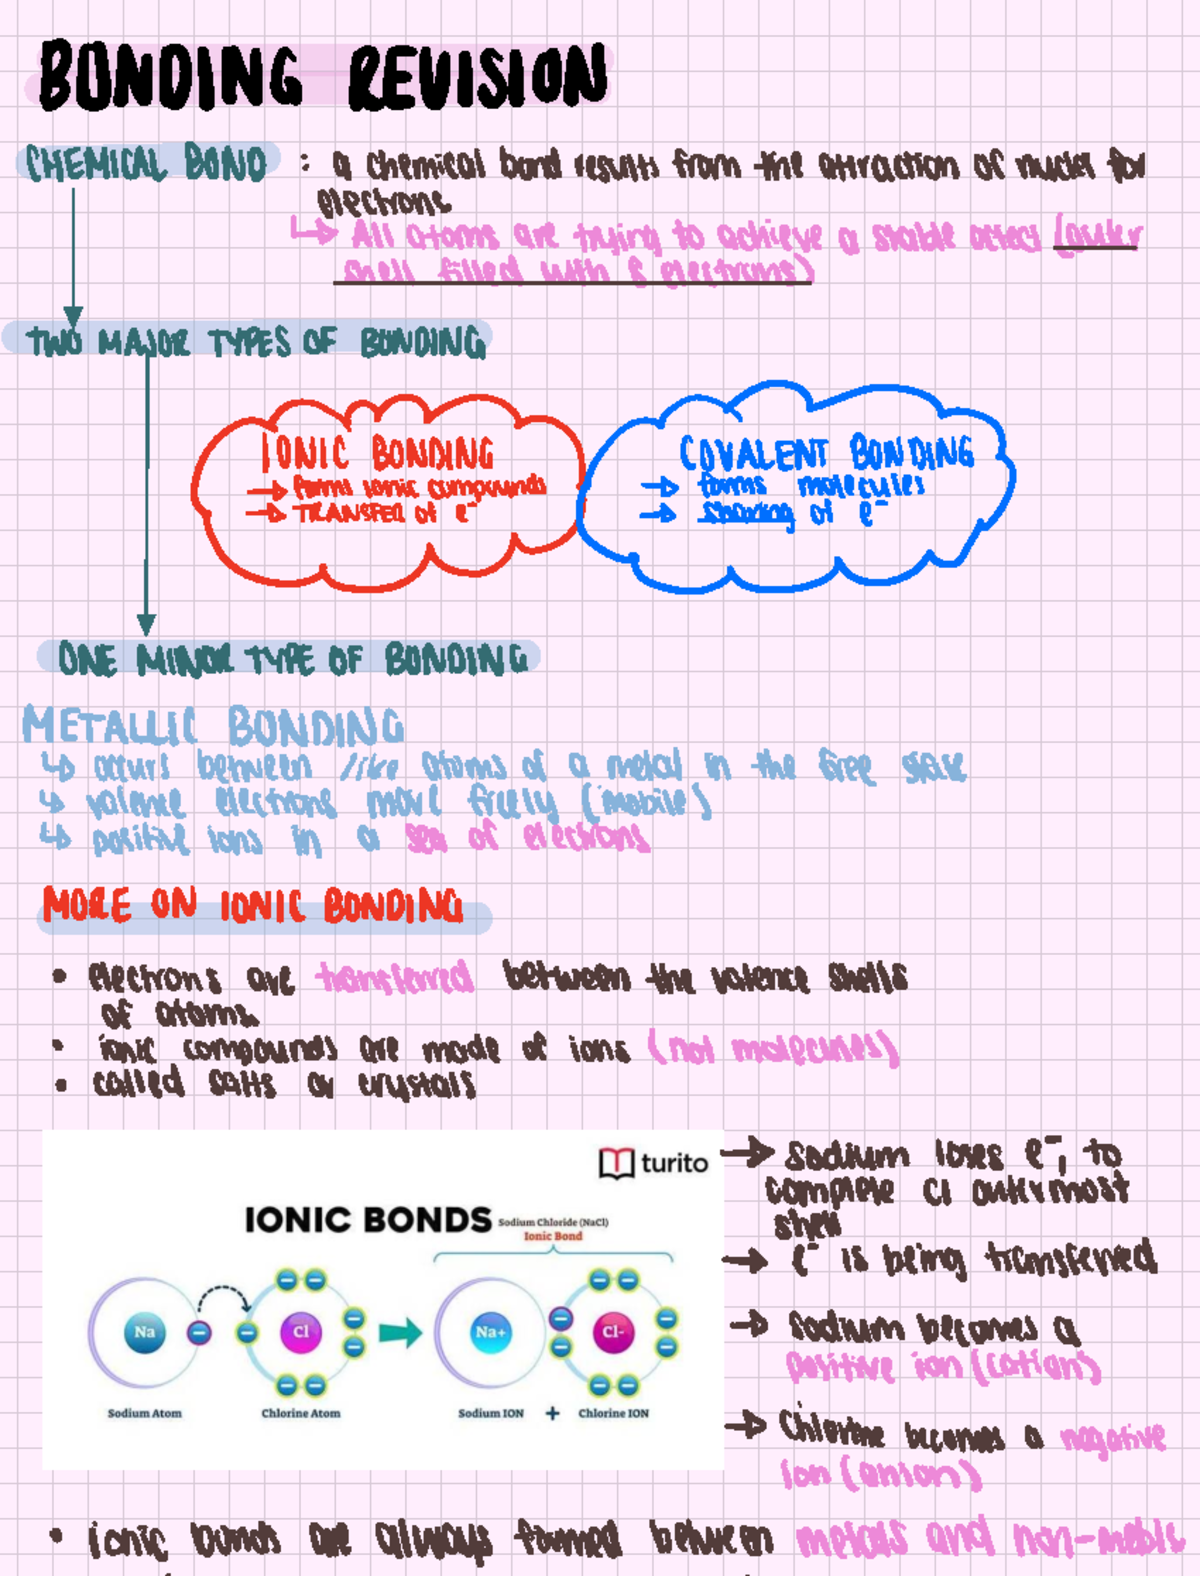 BONDING REVISION
CHEMICAL BOND : a chemical bond results from the attraction of nuclei for
electrons
↳ All atoms are trying to achieve a stable octect (outer
shell filled with 8 electrons)
TWO MAJOR TYPES OF BONDING
IONIC BONDING
→ forms ionic compounds
→ TRANSFER of e⁻
COVALENT BONDING
→ forms molecules
→ sharing of e⁻
ONE MINOR TYPE OF BONDING
METALLIC BONDING
↳ occurs between like atoms of a metal in the free state
↳ valence electrons move freely (mobile)
↳ positive ions in a sea of electrons
MORE ON IONIC BONDING
• electrons are transferred between the valence shells
of atoms.
• ionic compounds are made of ions (not molecules)
• called salts or crystals
turito
IONIC BONDS
Sodium Chloride (NaCl)
Ionic Bond
Na
Cl
Na+
Cl-
Sodium Atom
Chlorine Atom
Sodium ION + Chlorine ION
→ sodium loses e⁻, to
complete Cl outermost
shell
→ e⁻ is being transferred
→ sodium becomes a
positive ion (cation)
→ Chlorine becomes a negative
ion (anion)
• ionic bonds are always formed between metals and non-metals